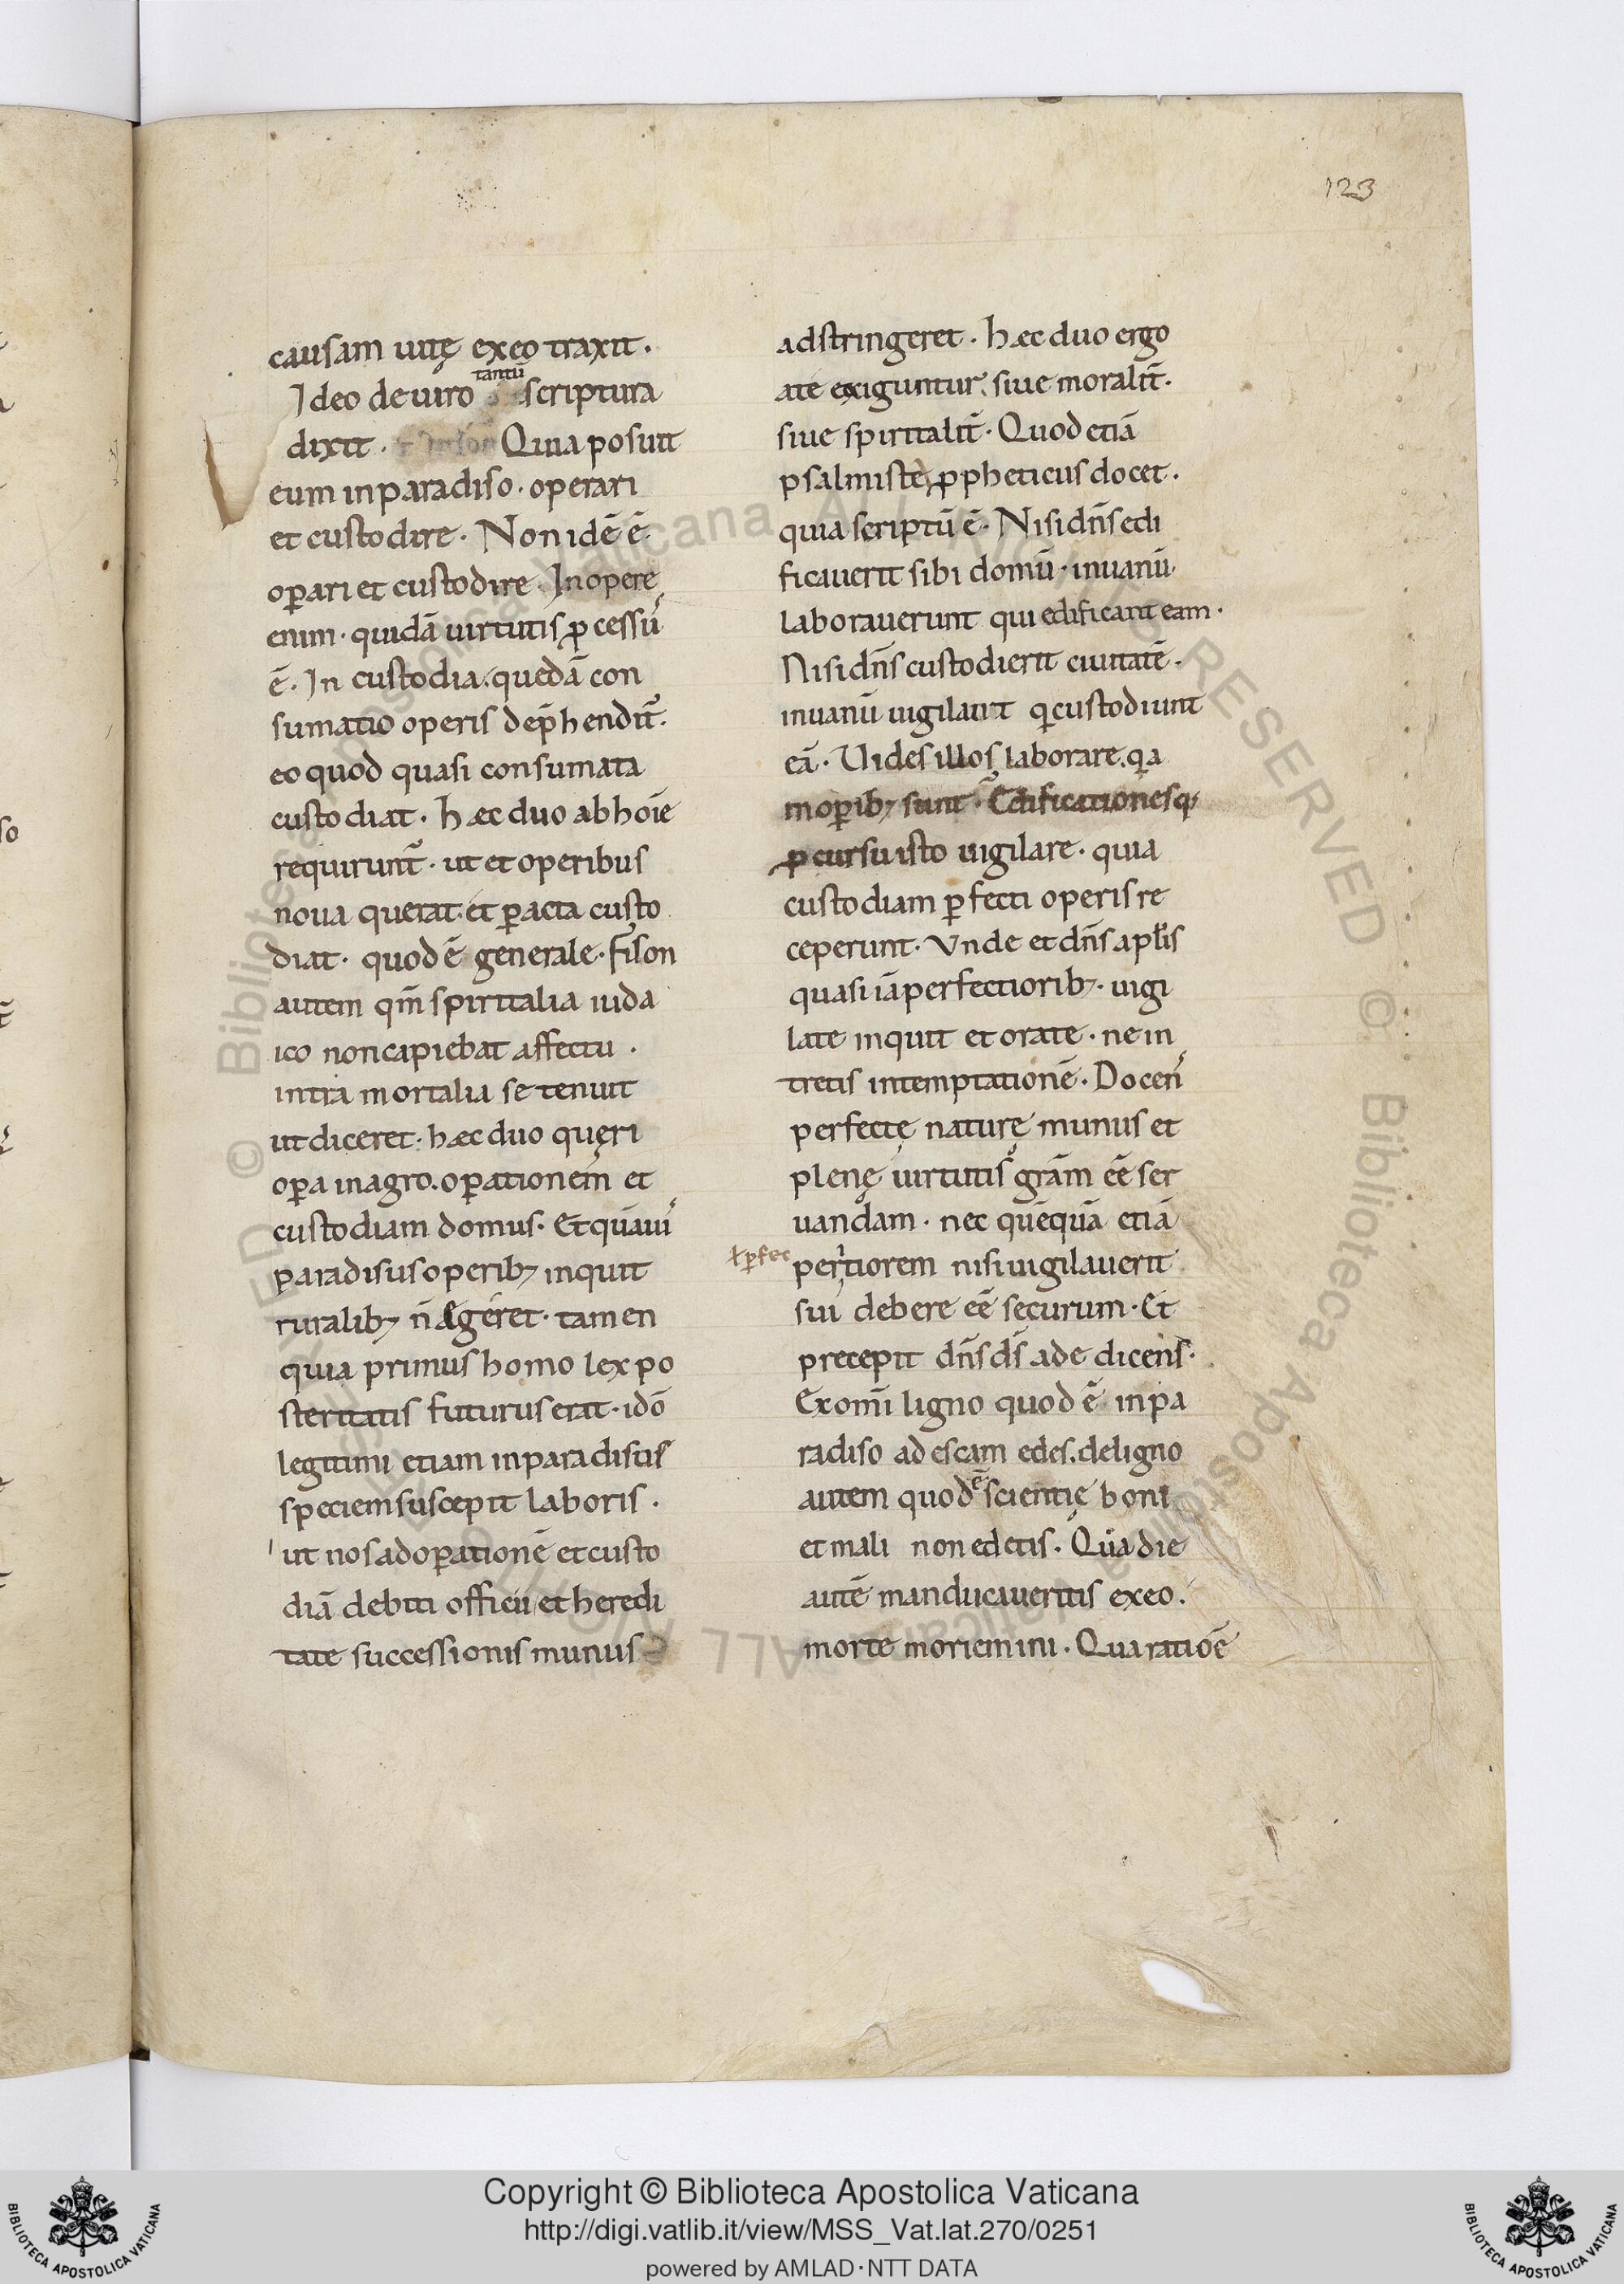 123
causam uitę exeo traxit.
Ideo deuiro tantū scriptura
dixit. Quia posuit
eum inparadiso. operari
et custodire. Non idē ē
op̄ari et custodire. In opere
enim. quidā uirtutis ꝓcessus
ē. In custodia. quedā con
sumatio operis dep̄henditur.
eo quod quasi consumata
custodiat. haec duo abhoīe
requirunt̄. ut et operibus
noua querat. et p̄acta custo
diat. quod ē generale. filon
autem qm̄ spiritalia iuda
ico noncapiebat affectu.
intra mortalia se tenuit
ut diceret. haec duo quęri
op̄a inagro. op̄ationem et
custodiam domus. Et quāuis
paradisus operibꝫ inquit
ruralibꝫ n̄ egeret. tamen
quia primus homo lex po
steritatis futurus erat. idō
legitimi etiam inparadiscis
speciem suscepit laboris.
ut nos adop̄ationē et custo
diā debiti officii et heredi
tate successionis munus
adstringeret. haec duo ergo
ate exiguntur. siue moralit̄.
siue spiritalit̄. Quod etiā
psalmiste ꝓpheticus docet.
quia scriptū ē. Nisi dn̄s edi
ficauerit sibi domū. inuanū
laborauerunt qui edificant eam.
Nisi dn̄s custodierit ciuitatē.
inuanū uigilant qui custodiunt
eā. Uides illos laborare. qia
inop̄ibꝫ sunt. Edificationesq;
ꝓcursu isto uigilare. quia
custodiam p̄fecti operis re
ceperunt. Vnde et dn̄s aplis
quasi iā perfectioribꝫ. uigi
late inquit et orate. ne in
tretis intemptationē. Docens
perfectę naturę munus et
plenę uirtutis gr̄am eē ser
uandam. nec quēquā etiā
ł p̄fec
pertiorem nisi uigilauerit
sui debere eē securum. Et
precepit dn̄s ds̄ ade dicens.
Ex omī ligno quod ē inpa
radiso ad escam edes. deligno
autem quod ē scientię boni
et mali non edetis. Qua die
autē manducaueritis exeo.
morte moriemini. Qua ratiōe
Copyright © Biblioteca Apostolica Vaticana
http://digi.vatlib.it/view/MSS_Vat.lat.270/0251
powered by AMLAD·NTT DATA
BIBLIOTECA APOSTOLICA VATICANA
BIBLIOTECA APOSTOLICA VATICANA